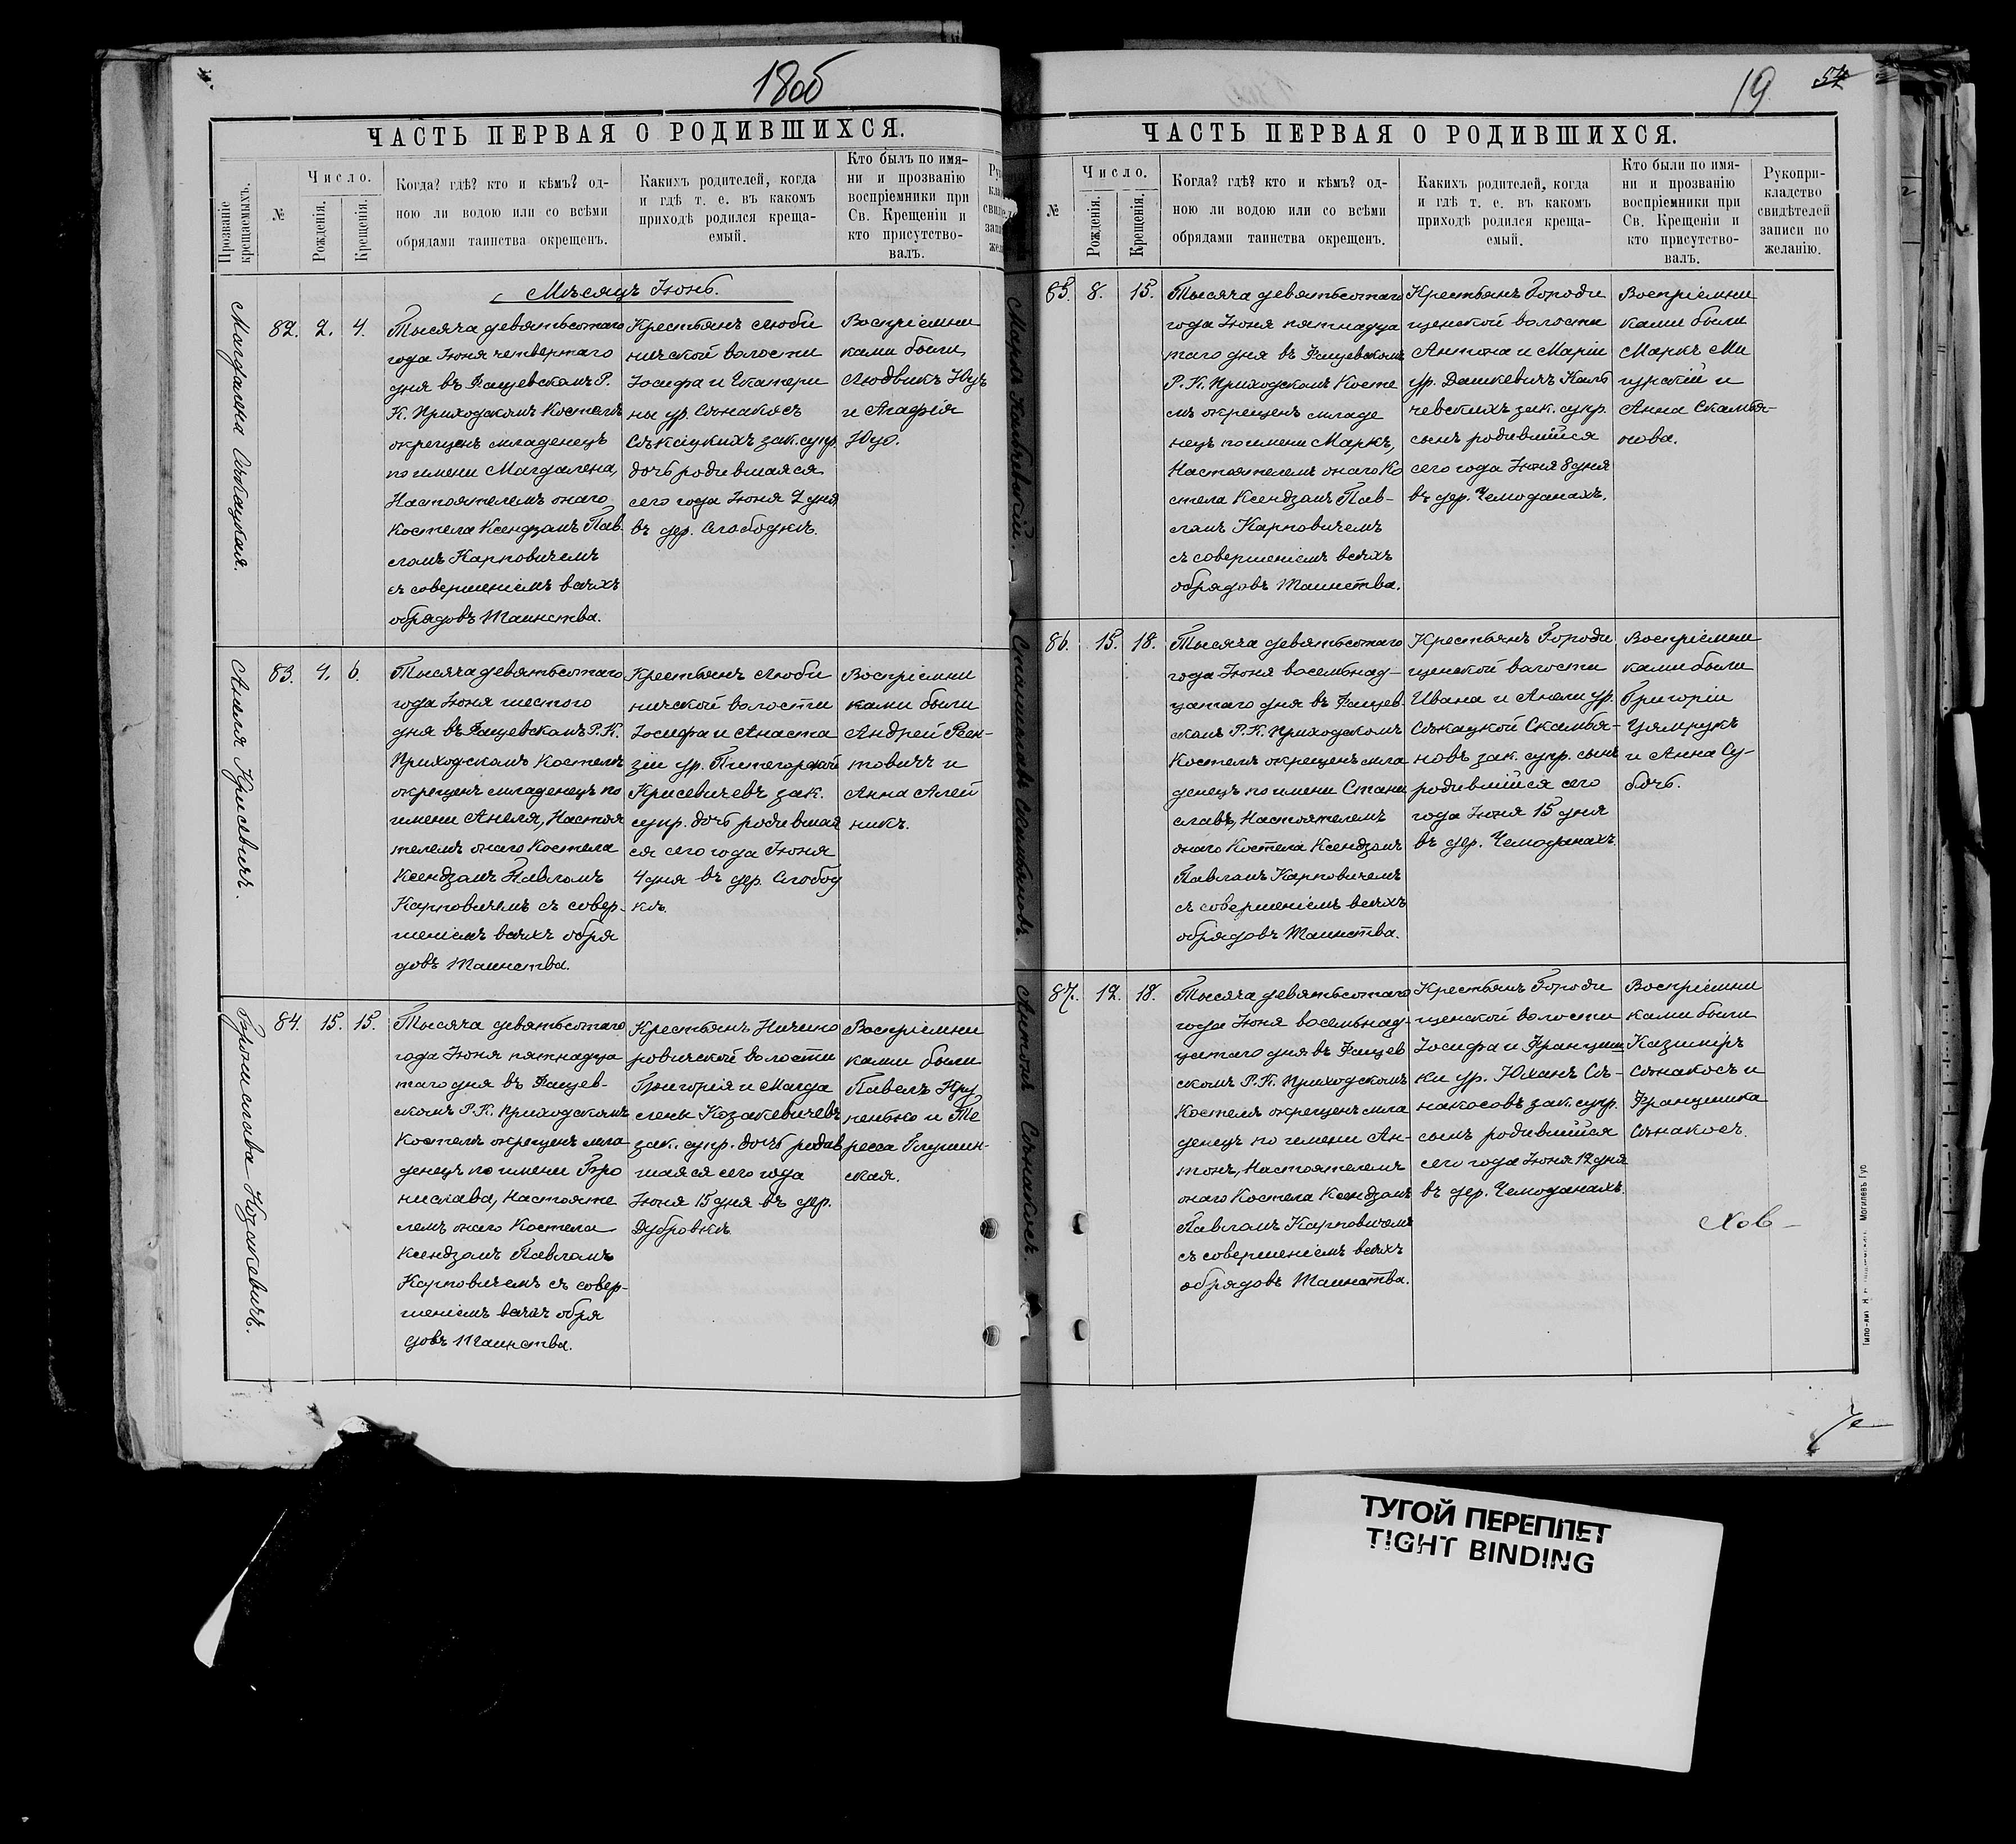 1806
ЧАСТЬ ПЕРВАЯ О РОДИВШИХСЯ.
Прозваніе
крещаемыхъ.
№
Число.
Рожденія.
Крещенія.
Когда? гдѣ? кто и кѣмъ? од-
ною ли водою или со всѣми
обрядами таинства окрещенъ.
Какихъ родителей, когда
и гдѣ т. е. въ какомъ
приходѣ родился креща-
емый.
Кто былъ по имя-
ни и прозванію
воспріемники при
Св. Крещеніи и
кто присутство-
валъ.
Мѣсяцъ Іюнь.
Магдалена
82. 2. 4.
Тысяча девятьсотаго
года Іюня четвертаго
дня въ Фащевскомъ Р.
К. Приходскомъ Костелѣ
окрещенъ младенецъ
по имени Магдалена,
Настоятелемъ онаго
Костела Ксендзомъ Пав-
ломъ Карповичемъ
съ совершеніемъ всѣхъ
обрядовъ Таинства.
Крестьянъ Люби
ничской волости
Іосифа и Екатери
ны ур. Сѣнакосъ
Сѣкацкихъ зак. супр.
дочь родившаяся
сего года Іюня 2 дня
въ дер. Слободкѣ.
Воспріемни
ками были
Людвикъ Юцъ
и Агафія
Юцо.
Анеля Крисевичъ.
83. 4. 6.
Тысяча девятьсотаго
года Іюня шестого
дня въ Фащевскомъ Р. К.
Приходскомъ Костелѣ
окрещенъ младенецъ по
имени Анеля, Настоя
телемъ онаго Костела
Ксендзомъ Павломъ
Карповичемъ съ совер-
шеніемъ всѣхъ обря
довъ Таинства.
Крестьянъ Люби
ничской волости
Іосифа и Анаста
зіи ур.
Крисевичевъ зак.
супр. дочь родившая
ся сего года Іюня
4 дня въ дер. Слобод
кѣ.
Воспріемни
ками были
Андрей Рен-
товичъ и
Анна Алей
никъ.
Бронислава Козакевичъ.
84. 15. 15.
Тысяча девятьсотаго
года Іюня пятнадца
таго дня въ Фащев-
скомъ Р. К. Приходскомъ
Костелѣ окрещенъ мла
денецъ по имени Бро
нислава, Настояте
лемъ онаго Костела
Ксендзомъ Павломъ
Карповичемъ съ совер-
шеніемъ всѣхъ обря
довъ Таинства.
Крестьянъ Ничипо
ровичской волости
Григорія и Магда
лены Козакевичевъ
зак. супр. дочь родив
шаяся сего года
Іюня 15 дня въ дер.
Дубровкѣ.
Воспріемни
ками были
Павелъ Кру
пенько и Те
ресса Глушин-
ская.
19
ЧАСТЬ ПЕРВАЯ О РОДИВШИХСЯ.
№
Число.
Рожденія.
Крещенія.
Когда? гдѣ? кто и кѣмъ? од-
ною ли водою или со всѣми
обрядами таинства окрещенъ.
Какихъ родителей, когда
и гдѣ т. е. въ какомъ
приходѣ родился креща-
емый.
Кто были по имя-
ни и прозванію
воспріемники при
Св. Крещеніи и
кто присутство-
валъ.
Рукопри-
кладство
свидѣтелей
записи по
желанію.
Маркъ Кальчевскій.
85. 8. 15.
Тысяча девятьсотаго
года Іюня пятнадца
таго дня въ Фащевскомъ
Р. К. Приходскомъ Косте
лѣ окрещенъ младе
нецъ по имени Маркъ,
Настоятелемъ онаго Ко
стела Ксендзомъ Пав-
ломъ Карповичемъ
съ совершеніемъ всѣхъ
обрядовъ Таинства.
Крестьянъ Городи
щенской волости
Антона и Маріи
ур. Дашкевичъ Каль
чевскихъ зак. супр.
сынъ родившійся
сего года Іюня 8 дня
въ дер. Чемоданахъ.
Воспріемни
ками были
Маркъ Ми
цускій и
Анна Скамья-
нова.
Станиславъ
86. 15. 18.
Тысяча девятьсотаго
года Іюня восемьнад-
цатаго дня въ Фащев
скомъ Р. К. Приходскомъ
Костелѣ окрещенъ мла
денецъ по имени Стани
славъ, Настоятелемъ
онаго Костела Ксендзомъ
Павломъ Карповичемъ
съ совершеніемъ всѣхъ
обрядовъ Таинства.
Крестьянъ Городи
щенской волости
Ивана и Анели ур.
Сѣкацкой Скамья-
новъ зак. супр. сынъ
родившійся сего
года Іюня 15 дня
въ дер. Чемоданахъ.
Воспріемни
ками были
Григорій
и Анна Су-
бочъ.
Антонъ Сѣнакосъ.
87. 12. 18.
Тысяча девятьсотаго
года Іюня восемьнад-
цатаго дня въ Фащев
скомъ Р. К. Приходскомъ
Костелѣ окрещенъ мла
денецъ по имени Ан-
тонъ, Настоятелемъ
онаго Костела Ксендзомъ
Павломъ Карповичемъ
съ совершеніемъ всѣхъ
обрядовъ Таинства.
Крестьянъ Городи
щенской волости
Іосифа и Францишк
ки ур. Юханъ Сѣ-
накосовъ зак. супр.
сынъ родившійся
сего года Іюня 12 дня
въ дер. Чемоданахъ.
Воспріемни
ками были
Казимиръ
Сѣнакосъ и
Францишка
Сѣнакосъ.
ТУГОЙ ПЕРЕПЛЕТ
TIGHT BINDING